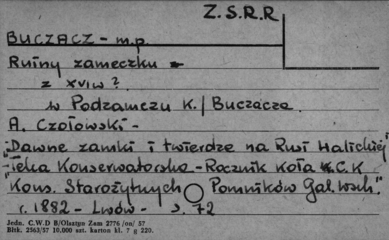 Z.S.R.R
BUCZACZ - m.p.
Ruiny zameczku
z XVI w ?
w Podzamczu K./Buczacza
A. Czołowski -
"Dawne zamki i twierdze na Rusi Halickiej"
"Teka Konserwatorska - Rocznik Koła C.K
Kons. Starożytnych Pomników Gal. Wsch."
r. 1882 - Lwów - s. 72
Jedn. C.W.D B/Olsztyn Zam 2776 /on/ 57
Bltk. 2563/57 10.000 szt. karton kl. 7 g 220.